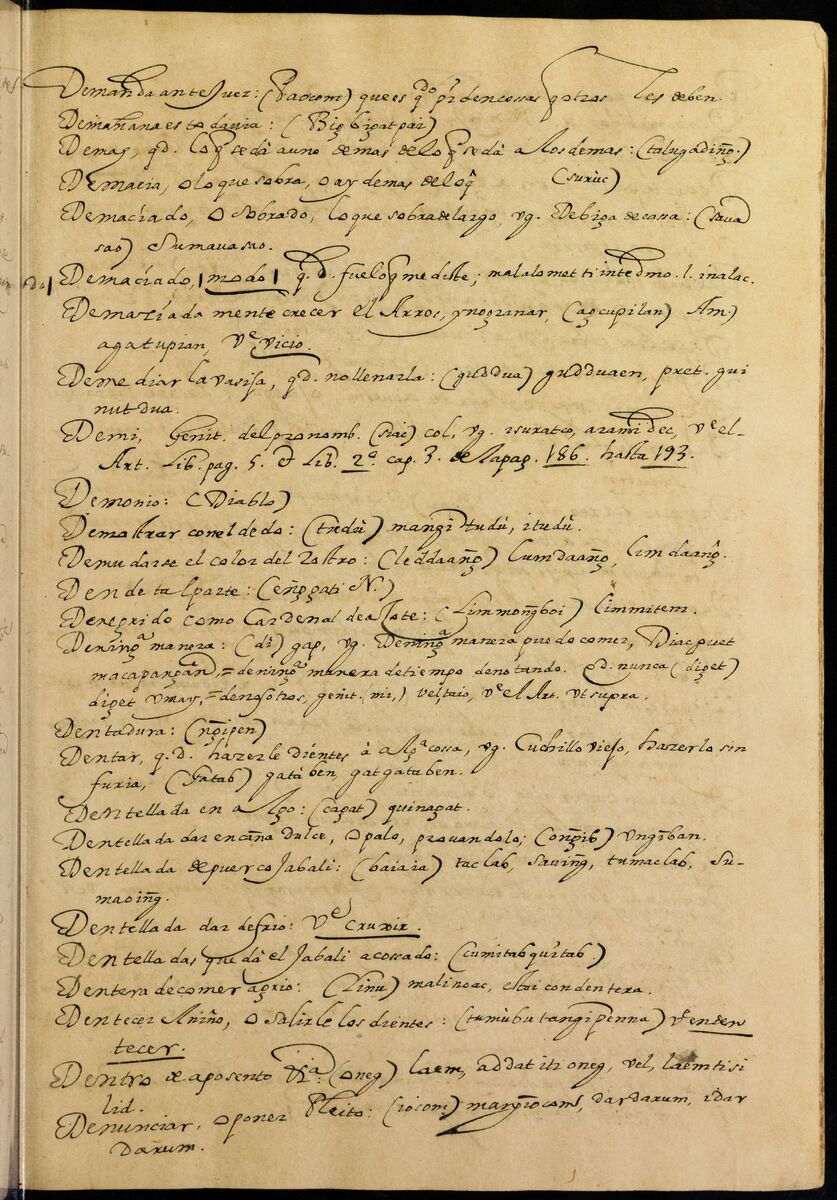 Demanda ante Juez: (Daocom) que es qdo piden cossas q otros les deben
De mañana es todavia: (Bigbigat pai)
Demas, q.d. lo q se dà a uno de mas de lo q se dà a los demas: (talugadiñg.)
Demacia, o lo que sobra, o ay demas de lo q̃ (surùc)
Demaciado, o sobrado, lo que sobra de largo, vg. de biga de cassa: (sava
sao) sumavasao.
Demaciado, | modo | q.d. fue lo q me diste; inalac.
Demaziada mente crecer el Arros, y no granar, (agcupilan) Am)
agatupian, Ve vicio.
Demediar la vasija, q.d. no llenarla: (guddua) gudduaen, pret. gui
nuddua.
Demi, Genit. del pronomb. (siac) co l, vg. isuratco, Ve el
Art. Lib. pag. 5. et Lib. 2º cap. 3. de la pag. 186. hasta 193.
Demonio: (Diablo)
Demostrar con el dedo: (tudù) mangitudù, itudù.
Demudarse el color del Rostro: (leddaañg) lumdaañg, limdaañg.
Den de tal parte: (eñggati N.)
Denegrido como Cardenal de açote: (Limmoñgboi) limmitem.
De ningª manera: (di) gap, vg. De ningª manera puedo comer, Diac puet
macapangan, = de ningª manera de tiempo denotando. q.d. nunca (diget)
diget umay, = denosotros, genit. mi,) vel, taio, Ve el Art. Vt supra.
Dentadura: (ngipen)
Dentar, q.d. hazerle dientes à algª cossa, vg. Cuchillo viejo, hazerlo sin
furia, (Gatab) gatàben, gatgataben.
Dentellada en algo: (cagat) quinagat.
Dentellada dar en caña dulce, o palo, provandolo; (oñgib) ungiban.
Dentellada de puerco Jabali: (baiaia) taclab, saviñg, tumaclab, su-
maoiñg.
Dentellada dar de frio: Ve Cruxir.
Dentelladas que dà el Jabali acossado: (cumitabquitab.)
Dentera de comer agrio: (Linu) malinoac, estoi con dentera.
Dentecer Aniño, o salirle los dientes: (tumùbu tangipenna) Ve enden
tecer.
Dentro de aposento (oneg) laem, addat iti oneg, vel, laem ti si
lid.
Denunciar, o poner Pleito: (iocom) mangiocom, dardarum, idar
darum.